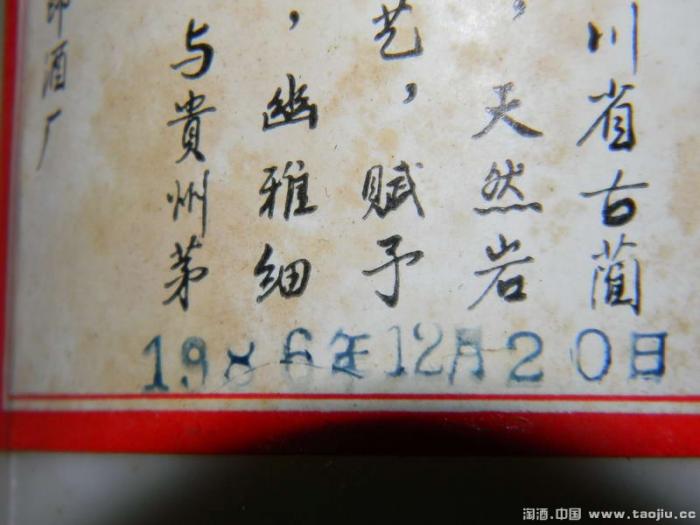 川省古蔺
,天然岩
艺,赋予
,幽雅细
与貴州茅
印酒厂
1986年12月20日
淘酒.中国 www.taojiu.cc